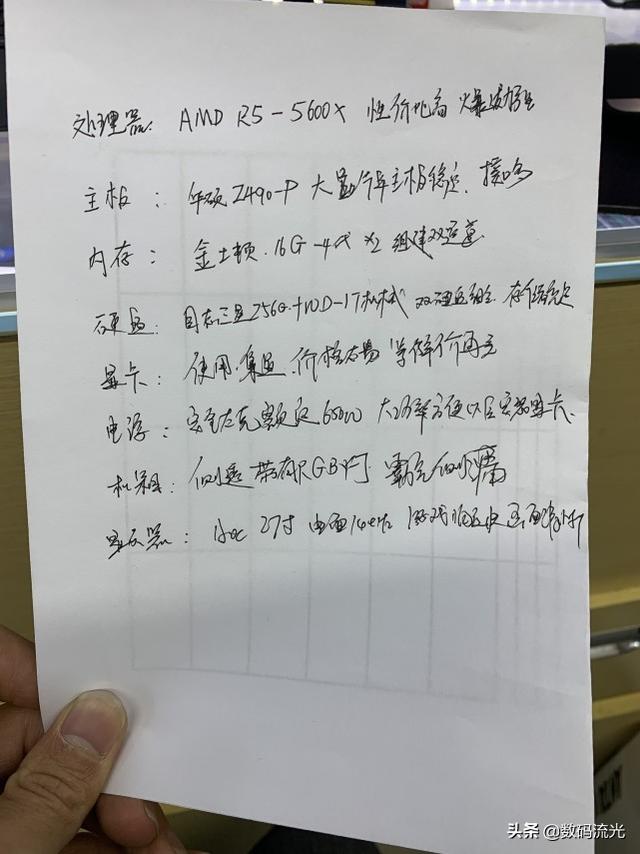 处理器: AMD R5-5600X 性价比高
主板: 华硕 Z490-P 大量行车主板稳定.
内存: 金士顿.16G-4代 x2 组建双通道
硬盘: 固态三星256G+WD-1T机械 双硬盘组合 存储稳定
显卡: 使用.集显.价格太高 等降价再上
电源: 安钛克额定650W 大功率方便以后安装显卡.
机箱: 侧透 带有RGB灯 霸气侧漏
显示器: AOC 27寸 曲面144Hz 游戏 画面
头条 @数码流光